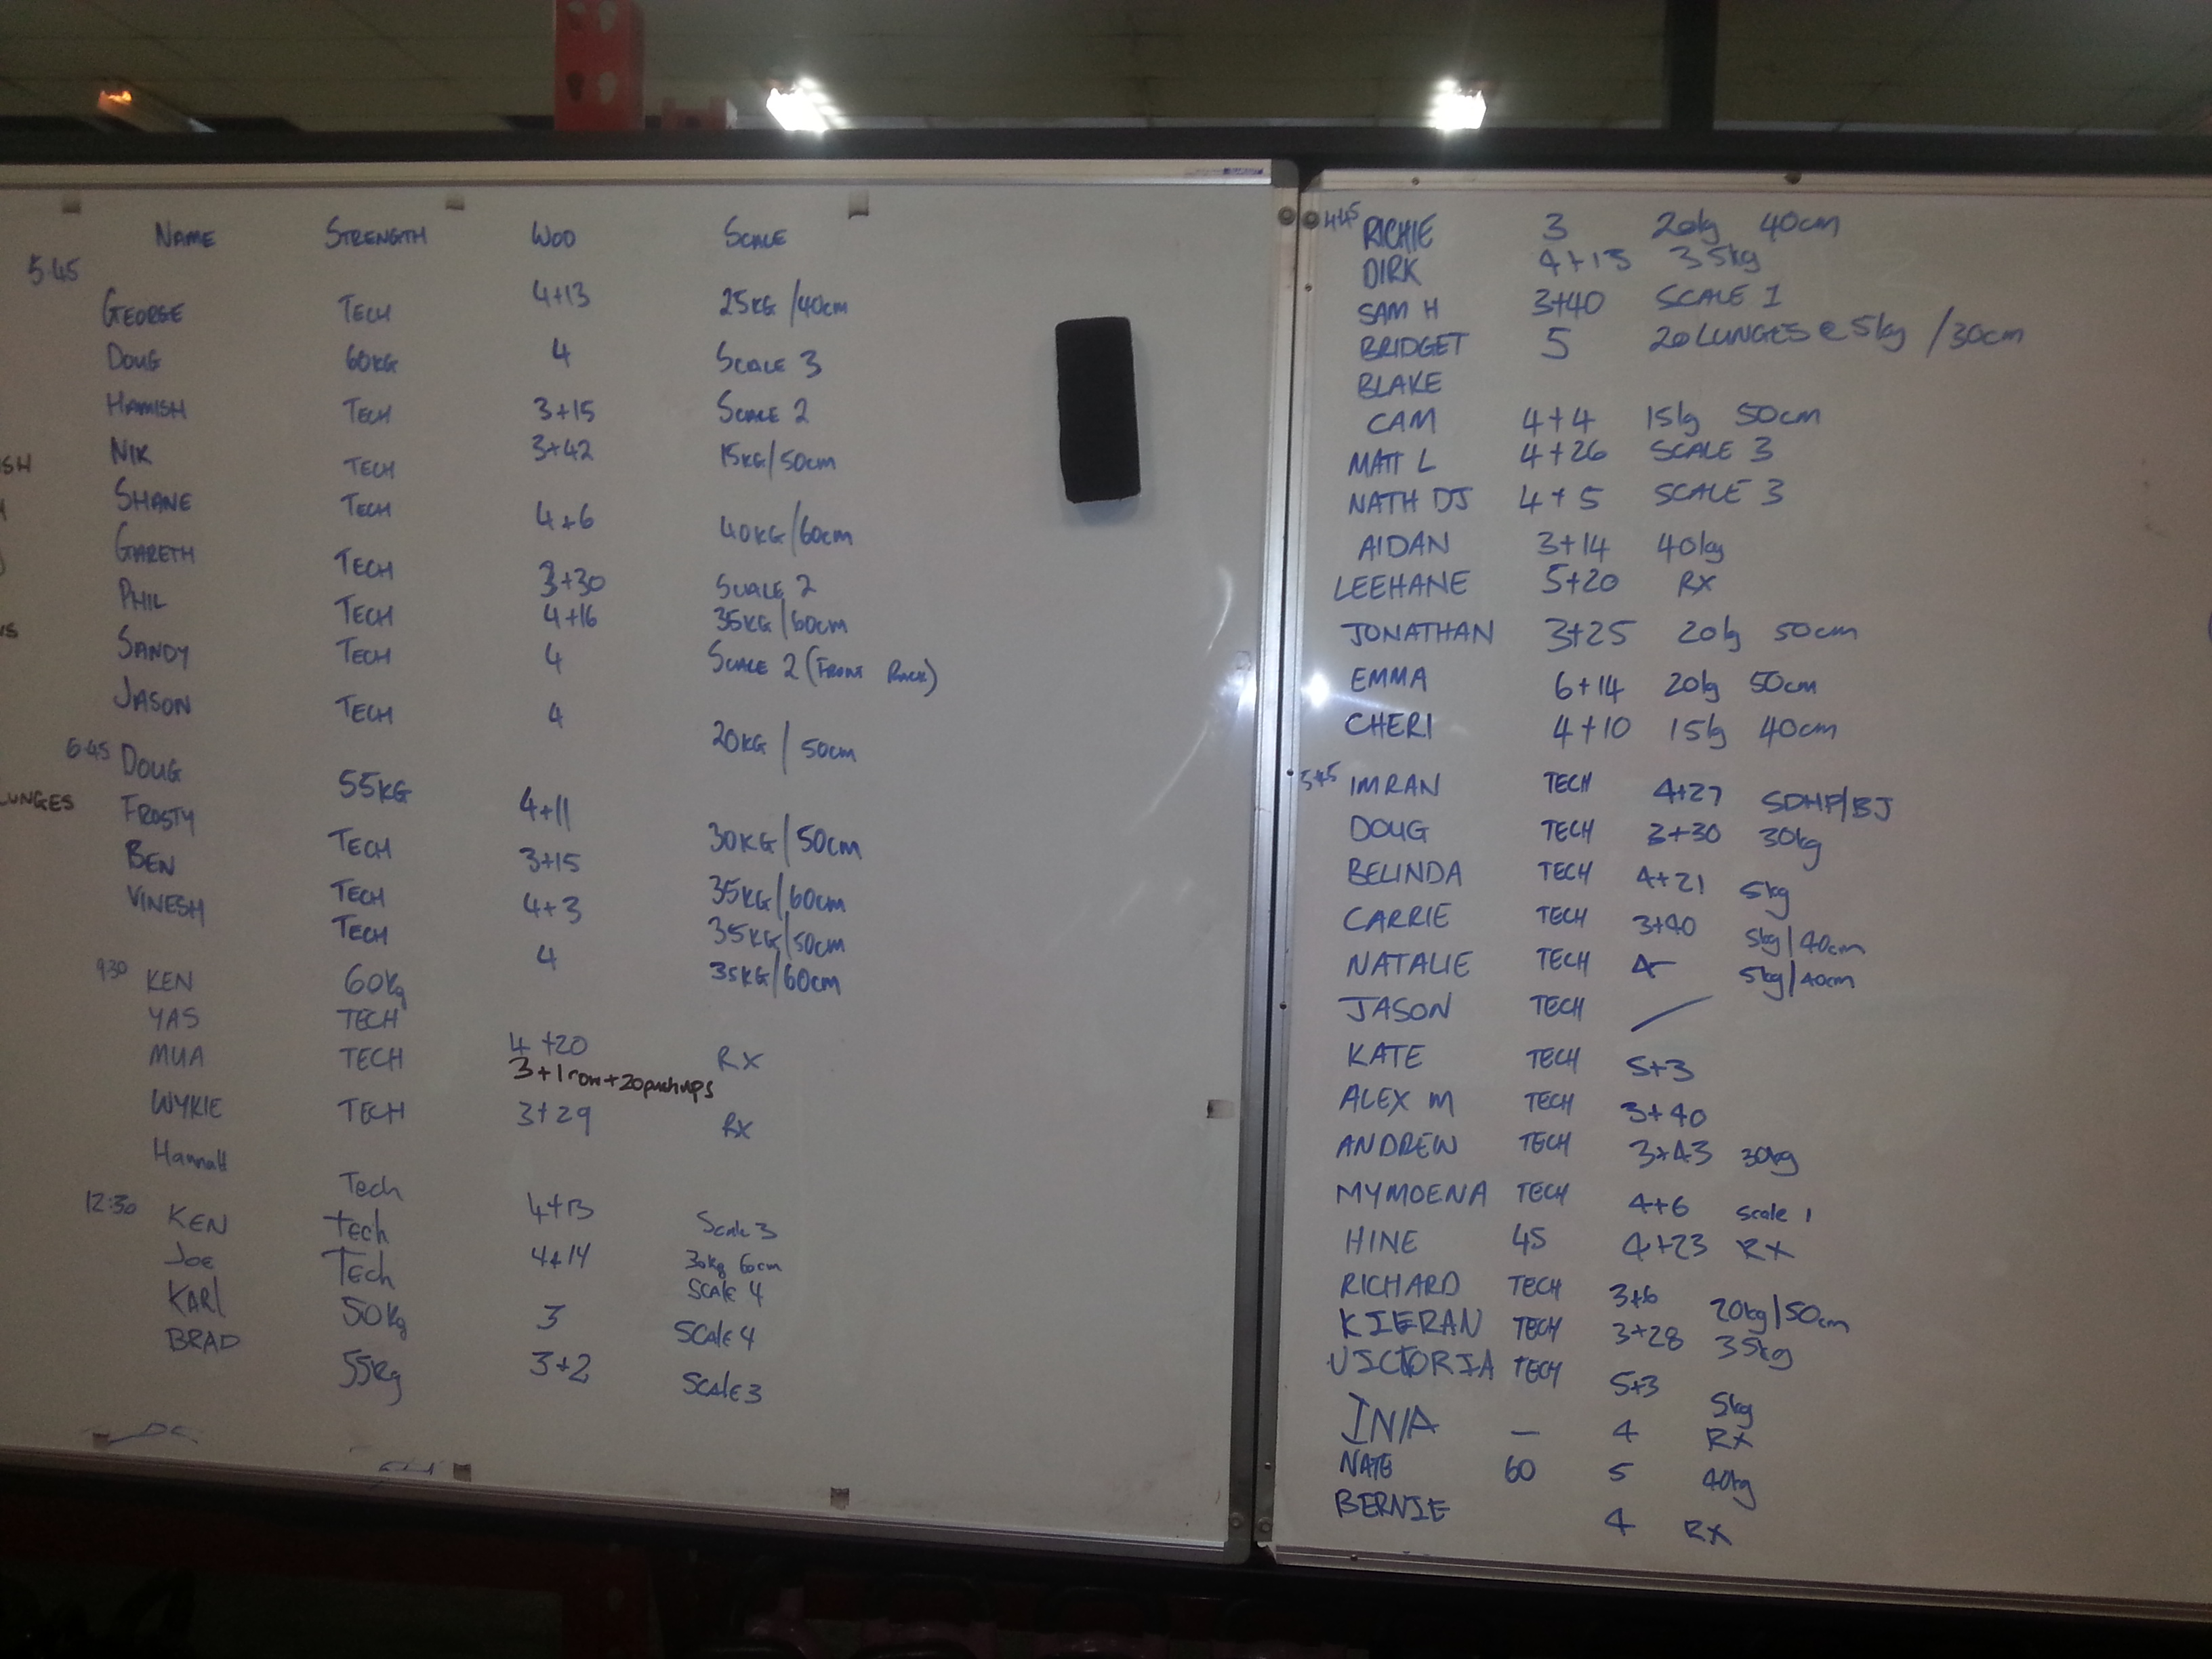 NAME STRENGTH WOD SCALE
5.45
GEORGE TECH 4+13 25KG/40cm
DOUG 60KG 4 SCALE 3
HAMISH TECH 3+15 SCALE 2
NIK TECH 3+42 15KG/50cm
SHANE TECH 4+6 40KG/60cm
GARETH TECH 3+30 SCALE 2
PHIL TECH 4+16 35KG/60cm
SANDY TECH 4 SCALE 2 (FRONT RACK)
JASON TECH 4 20KG/50cm
6.45 DOUG 55KG 4+11 30KG/50cm
FROSTY TECH 3+15 35KG/60cm
BEN TECH 4+3 35KG/50cm
VINESH TECH 4 35KG/60cm
9.30 KEN 60Kg
YAS TECH 4+20 RX
MUA TECH 3+1 row+20pushups
WYKIE TECH 3+29 RX
HannaH Tech 4+13 Scale 3
12:30 KEN tech 4+14 30kg 60cm
JOE TEch SCAlE 4
KARl 50Kg 3 SCAlE 4
BRAD 55Kg 3+2 SCAlE 3
SH
LUNGES
4.45 RICHIE 3 20kg 40cm
DIRK 4+13 35kg
SAM H 3+40 SCALE 1
BRIDGET 5 20 LUNGES @ 5kg /30cm
BLAKE
CAM 4+4 15kg 50cm
MATT L 4+26 SCALE 3
NATH DJ 4+5 SCALE 3
AIDAN 3+14 40kg
LEEHANE 5+20 RX
JONATHAN 3+25 20kg 50cm
EMMA 6+14 20kg 50cm
CHERI 4+10 15kg 40cm
5.45 IMRAN TECH 4+27 SDHP/BJ
DOUG TECH 3+30 30kg
BELINDA TECH 4+21 5kg
CARRIE TECH 3+40 5kg/40cm
NATALIE TECH 4 5kg/40cm
JASON TECH
KATE TECH 5+3
ALEX M TECH 3+40
ANDREW TECH 3+43 30kg
MYMOENA TECH 4+6 Scale 1
HINE 45 4+23 RX
RICHARD TECH 3+6 20kg/50cm
KIERAN TECH 3+28 35kg
VICTORIA TECH 5+3 5kg
INIA — 4 RX
NATE 60 5 40kg
BERNIE 4 RX